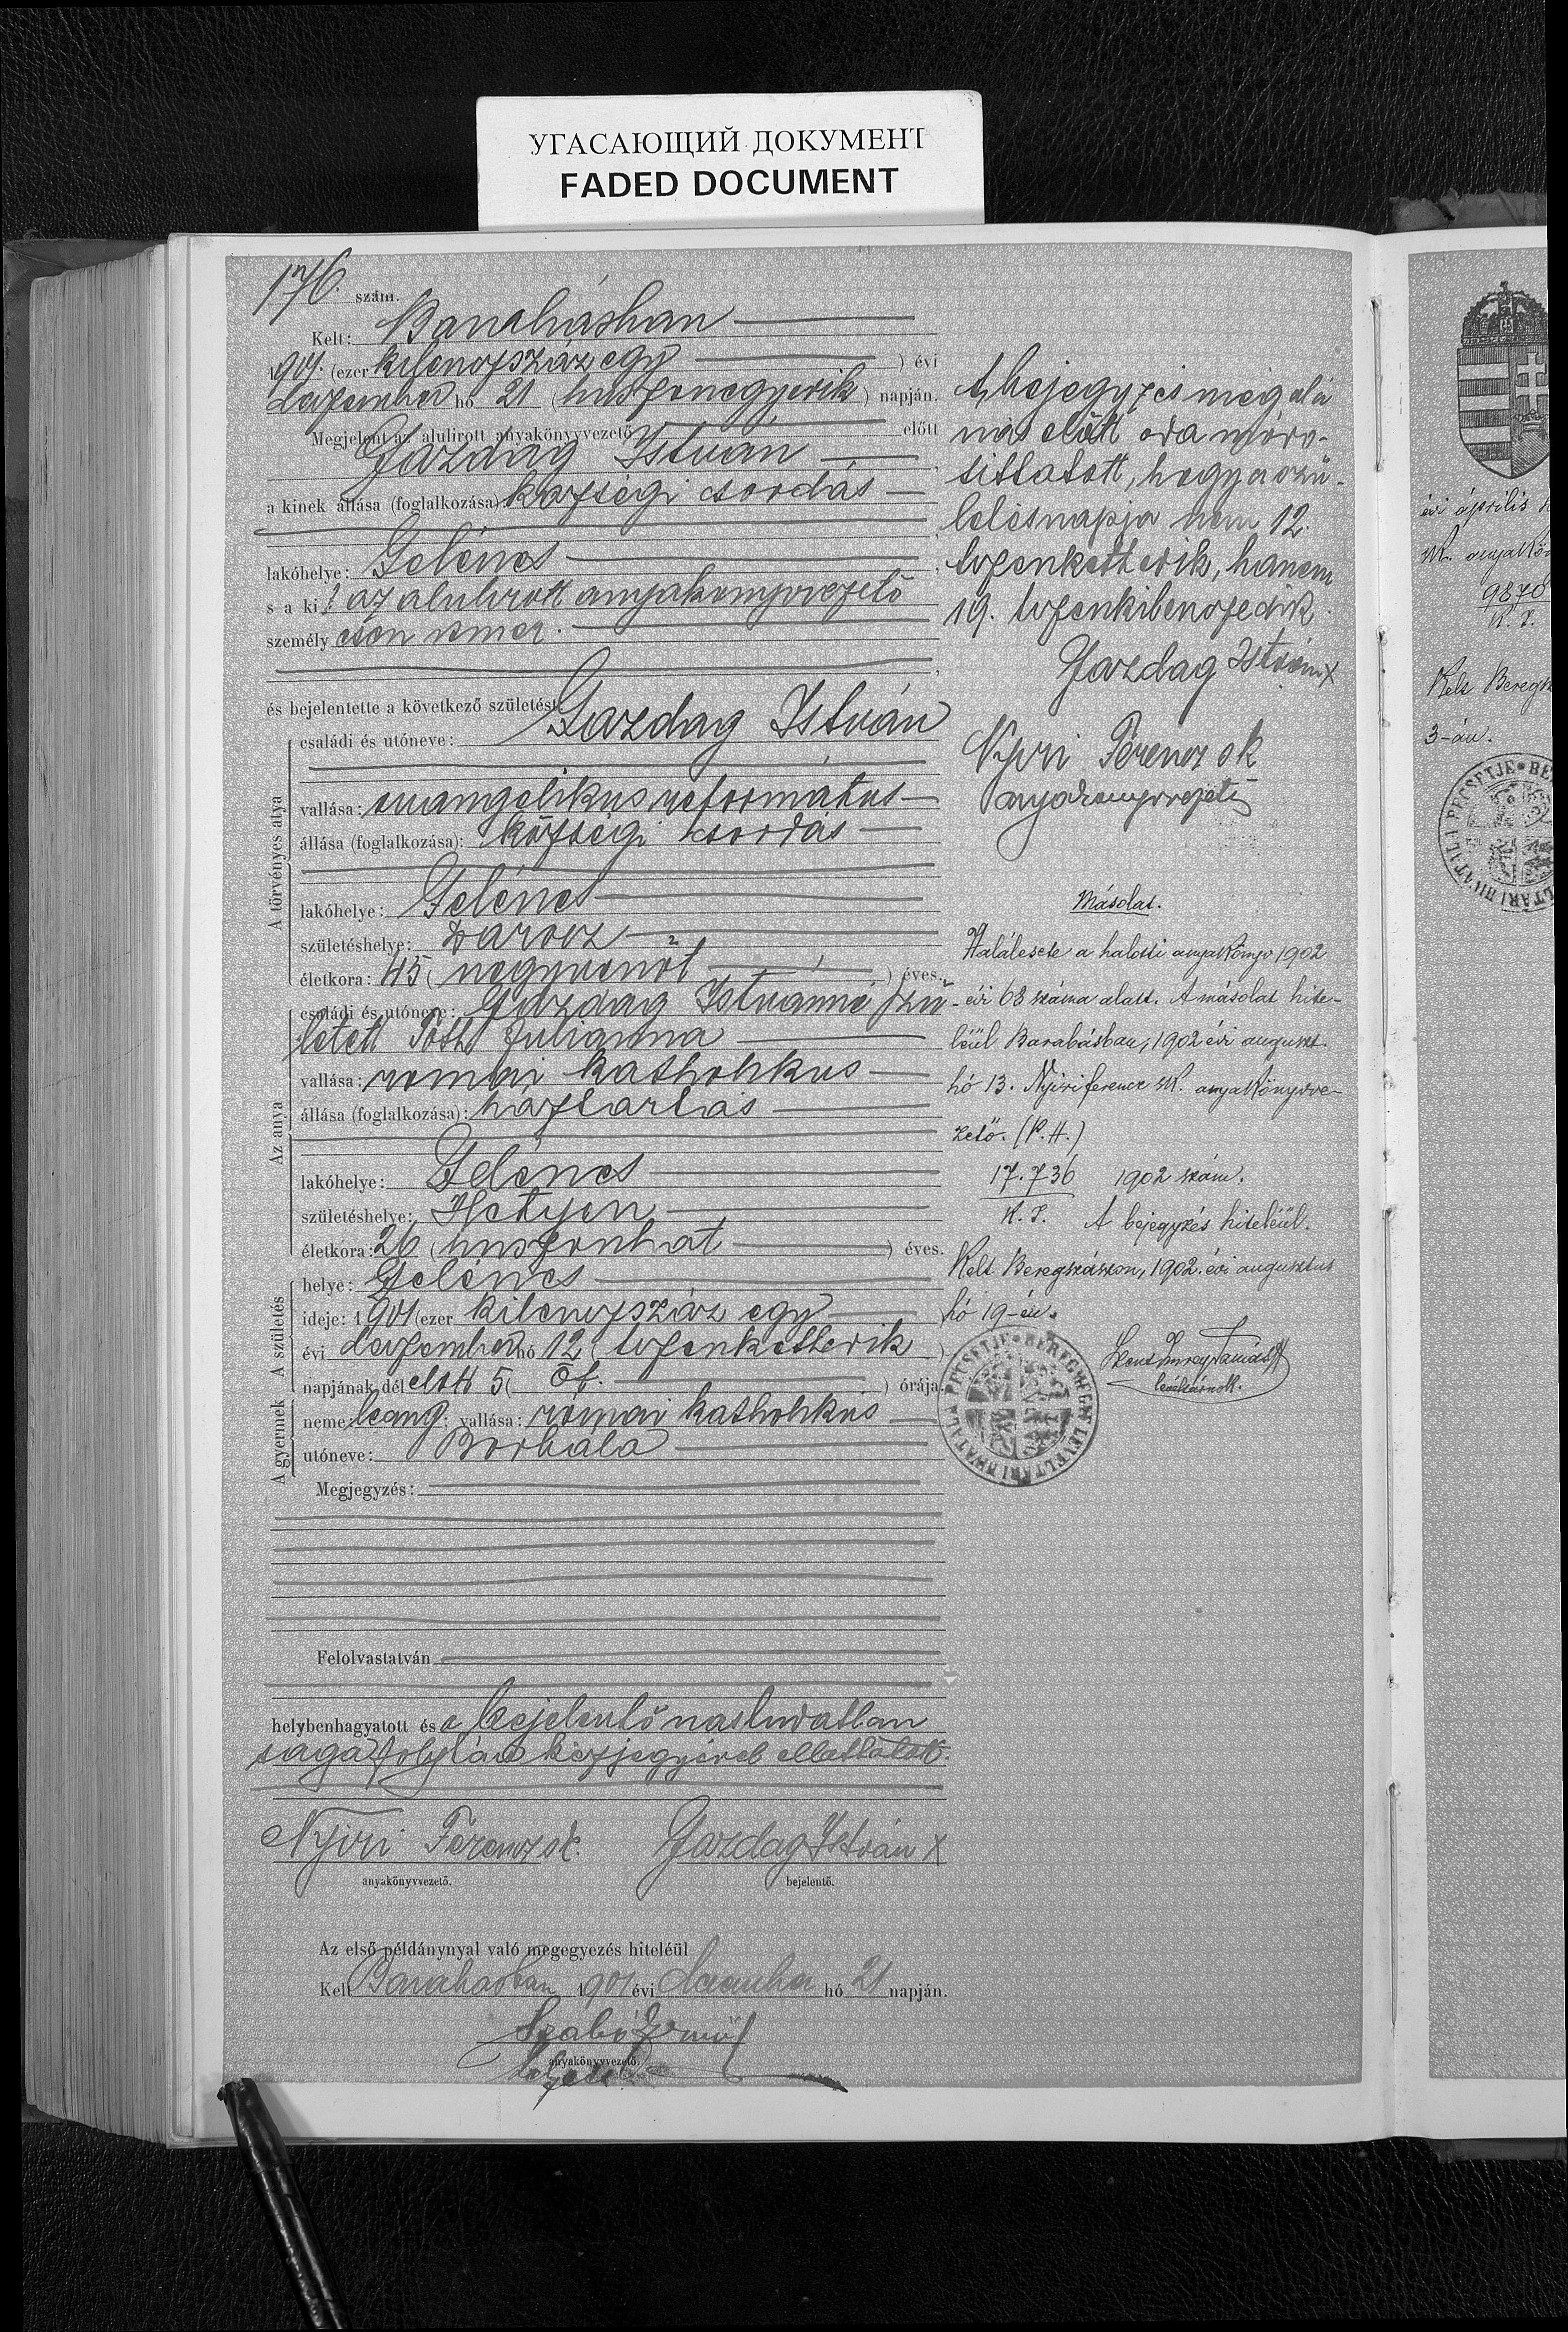 УГАСАЮЩИЙ ДОКУМЕНТ
FADED DOCUMENT
176. szám.
Kelt: Barabásban
1901. (ezer kilenczszáz egy ) évi
deczember hó 21 (huszonegyedik) napján.
Megjelent az alulirott anyakönyvvezető előtt
Gazdag István
a kinek állása (foglalkozása): községi csordás
lakóhelye: Gelénes
s a ki t az alulirott anyakönyvvezető
személyesen ismer.
és bejelentette a következő születést:
A törvényes atya
családi és utóneve: Gazdag István
vallása: evangelikus református
állása (foglalkozása): községi csordás
lakóhelye: Gelénes
születéshelye: Darócz
életkora: 45 ( negyvenöt ) éves.
Az anya
családi és utóneve: Gazdag Istvánné szü-
letett Tóth Julianna
vallása: romai katholikus
állása (foglalkozása): háztartás
lakóhelye: Gelénes
születéshelye: Hetyen
életkora: 26 ( huszonhat ) éves.
A születés
helye: Gelénes
ideje: 1901 (ezer kilenczszáz egy
évi deczember hó 12 ( tizenkettedik )
napjának dél előtt 5 ( öt. ) órája.
A gyermek
neme: leány; vallása: római katholikus
utóneve: Borbála
Megjegyzés:
Felolvastatván
helybenhagyatott és a bejelentő irástudatlan
sága folytán kézjegyével elláttatott.
Nyiri Ferencz sk. Gazdag István X
anyakönyvvezető. bejelentő.
Az első példánynyal való megegyezés hiteléül
Kelt Barabásban 1901 évi december hó 21 napján.
Szabó Ernő
anyakönyvvezető.
A bejegyzés megalá
irás előtt oda módo-
sittatott, hogy a szü-
letés napja nem 12.
tizenkettedik, hanem
19. tizenkilenczedik
Gazdag István X
Nyiri Ferencz sk
anyakönyvvezető
Másolat.
Halálesete a halotti anyakönyv 1902
évi 68 száma alatt. A másolat hite-
léül Barabásban, 1902 évi auguszt.
hó 13. Nyiri ferencz sk. anyakönyvve-
zető. (P. H.)
17.736 1902 szám.
K. I. A bejegyzés hiteléül.
Kelt Beregszászon, 1902. évi augusztus
hó 19-én.
Szent Imrey Tamás
levéltárnok.
évi április h
sk. anyakön
9870
K. I.
Kelt Beregsz
3-án.